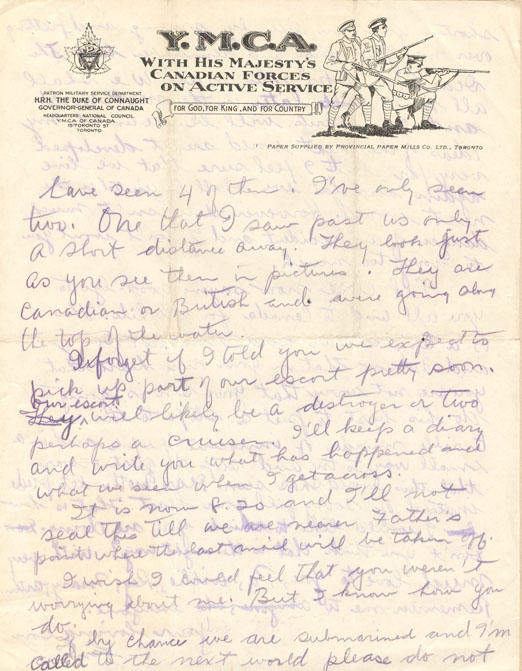 Y.M.C.A.
WITH HIS MAJESTY'S
CANADIAN FORCES
ON ACTIVE SERVICE
FOR GOD, FOR KING, AND FOR COUNTRY
PATRON MILITARY SERVICE DEPARTMENT
H.R.H. THE DUKE OF CONNAUGHT
GOVERNOR-GENERAL OF CANADA
HEADQUARTERS NATIONAL COUNCIL
Y.M.C.A. OF CANADA
15 TORONTO ST
TORONTO
PAPER SUPPLIED BY PROVINCIAL PAPER MILLS CO. LTD., TORONTO
have seen 4 of them. I've only seen
two. One that I saw past us only
a short distance away. They look just
as you see them in pictures. They are
Canadian or British and were going along
the top of the water.
I forget if I told you we expect to
pick up part of our escort pretty soon.
Our escort
They will likely be a destroyer or two
perhaps a cruiser. I'll keep a diary
and write you what has happened and
what we seen when I get across.
It is now 8.20 and I'll not
seal this till we are nearer Father's
point where the last mail will be taken off.
I wish I could feel that you weren't
worrying about me. But I know how you
do.
If by chance we are submarined and I'm
called to the next world please do not